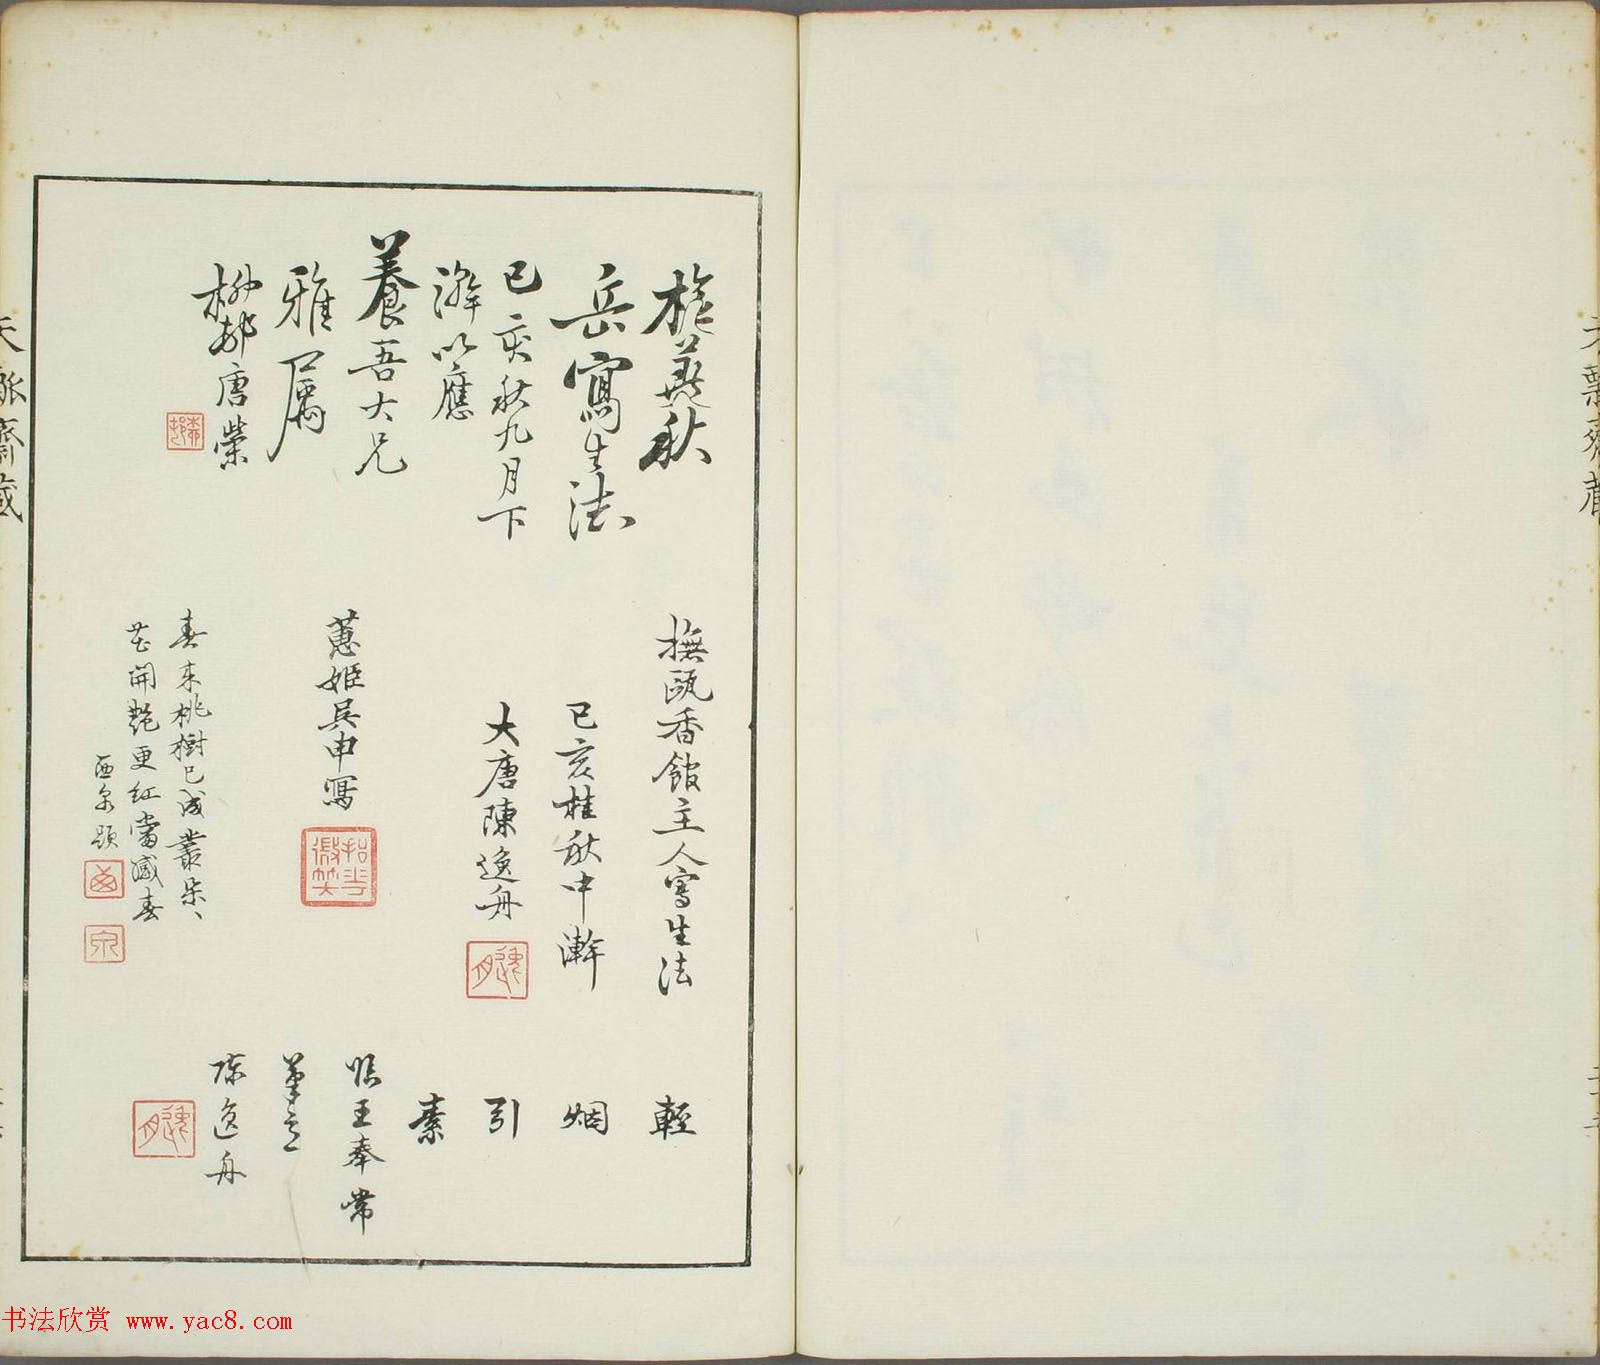 旌燕秋
岳寫生法
己亥秋九月下
澣以應
養吾大兄
雅屬
柳邨唐榮
撫甌香館主人寫生法
己亥桂秋中澣
大唐陳逸舟
蕙姬吳申寫
春來桃樹已成叢朵、
花開艷更紅當減春
西泉題
輕
烟
引
素
臨王奉常
筆意
陳逸舟
書法欣赏 www.yac8.com